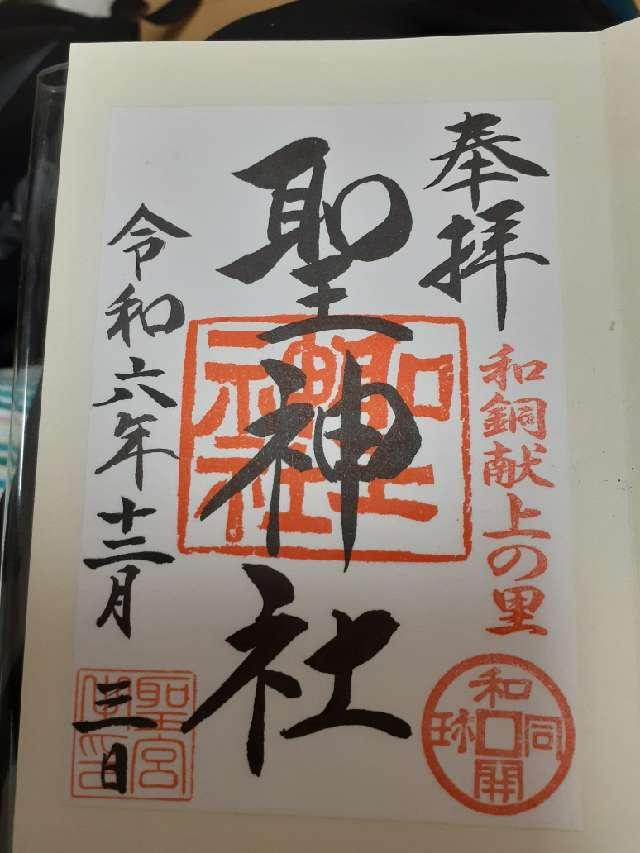 奉拝
和銅献上の里
和同開珎
聖神社
聖神社
令和六年十二月三日